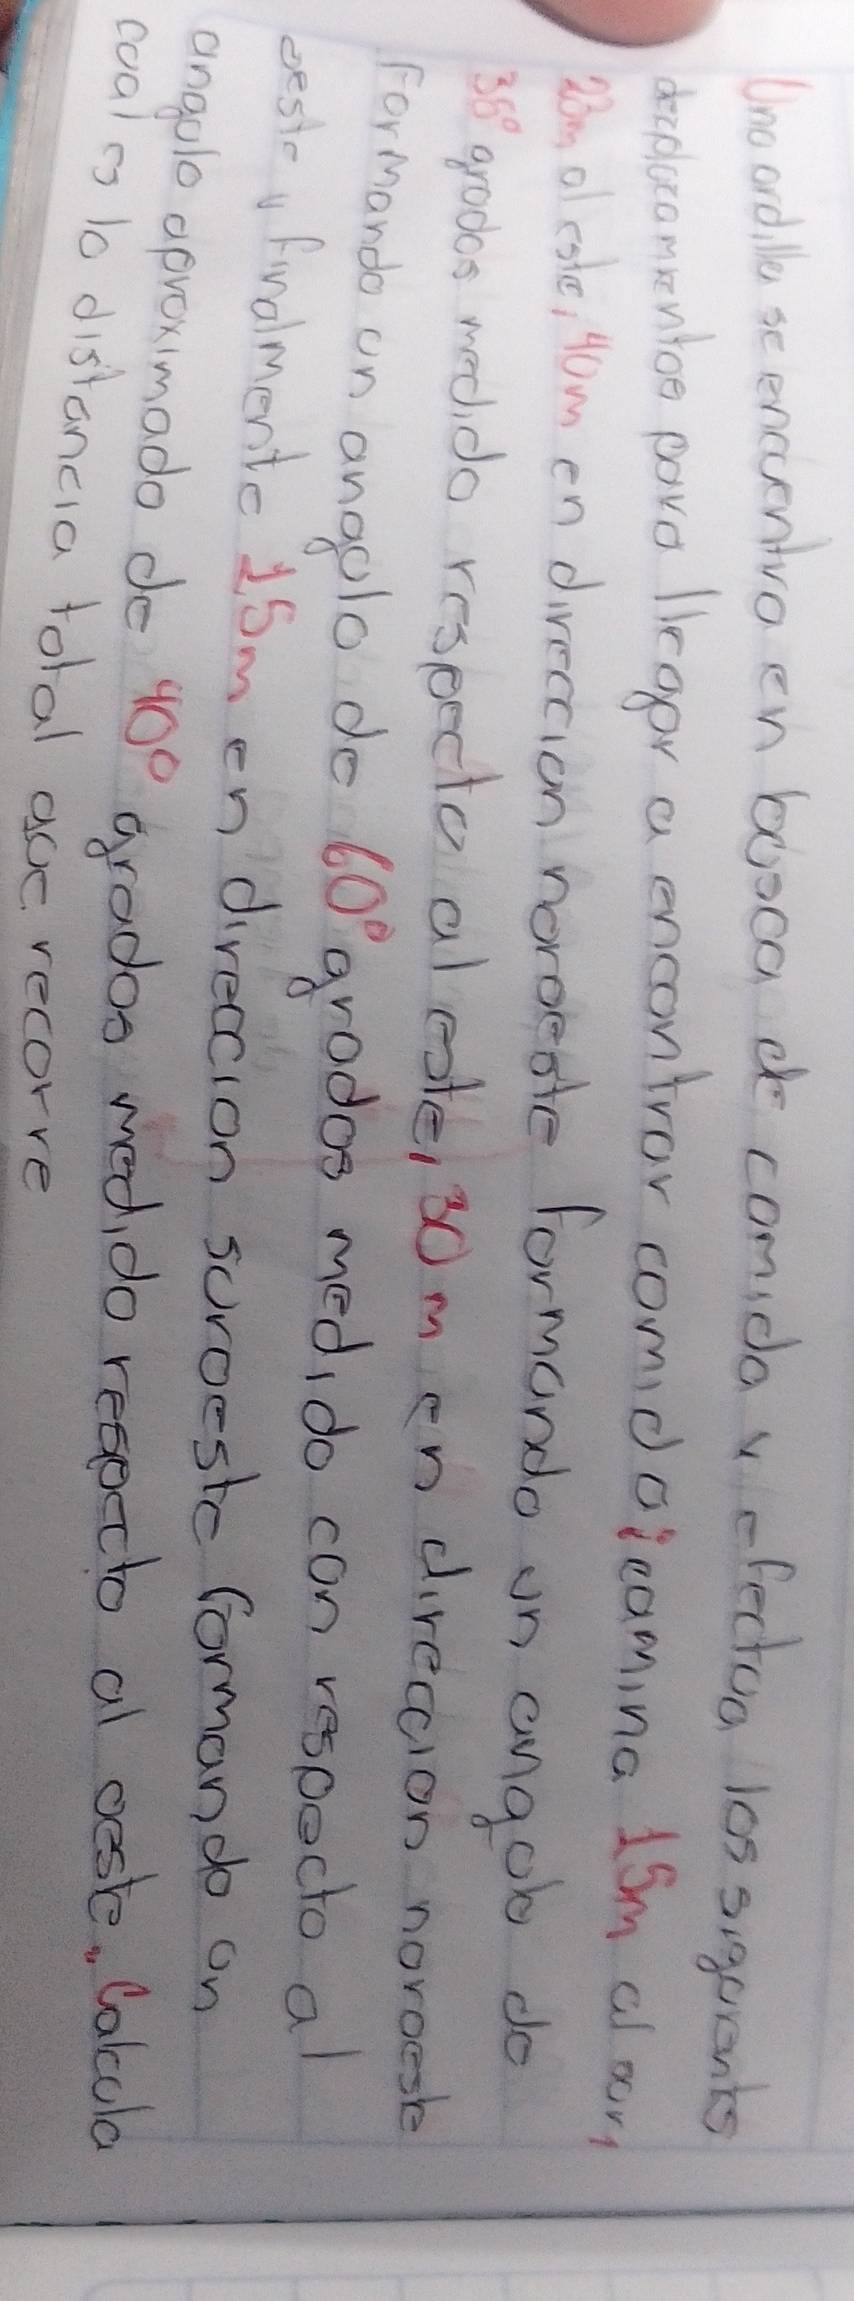 Una ardilla se encuentra en busca de comida y efectua los siguientes
desplazamientos para llegar a encontrar comida; camina 15m al sur,
23m al este, 40m en direccion noroeste formando un angulo de
36° grados medido respecto al este, 30 m en direccion noroeste
formando un angulo de 60° grados medido con respecto al
oeste y finalmente 15m en direccion suroeste formando un
angulo aproximado de 40° grados medido respecto al oeste. Calcula
cual es la distancia total que recorre